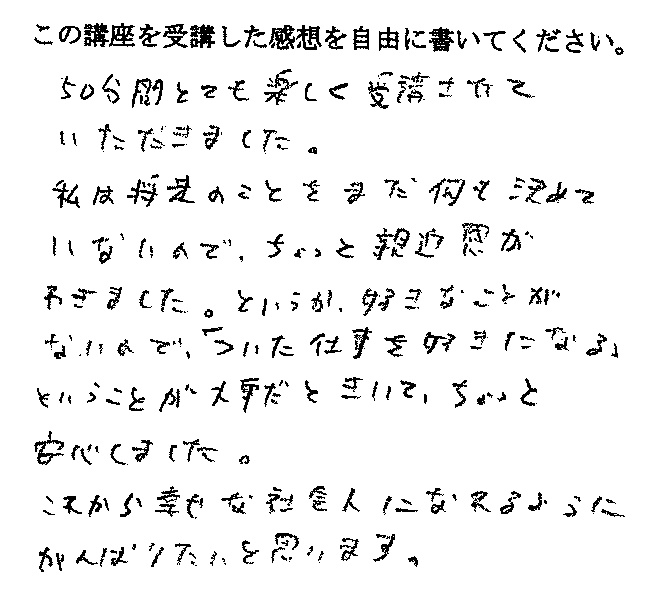 この講座を受講した感想を自由に書いてください。
50分間とても楽しく受講させて
いただきました。
私は将来のことをまだ何も決めて
いないので、ちょっと親近感が
わきました。というか、好きなことが
ないので、「ついた仕事を好きになる」
ということが大事だときいて、ちょっと
安心しました。
これから幸せな社会人になれるように
がんばりたいと思います。